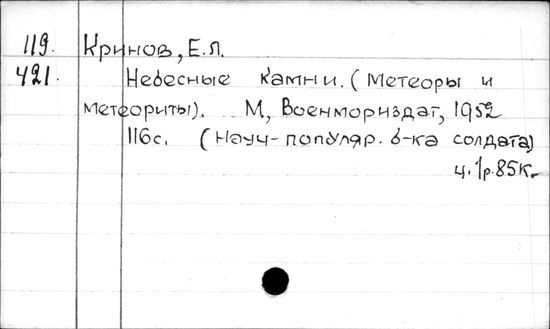 119. Кринов, Е.Л.
421. Небесные камни. (Метеоры и
метеориты). М, Воениориздат, 1952
116с. (науч-популяр. б-ка солдата)
ц. 1р.85к.